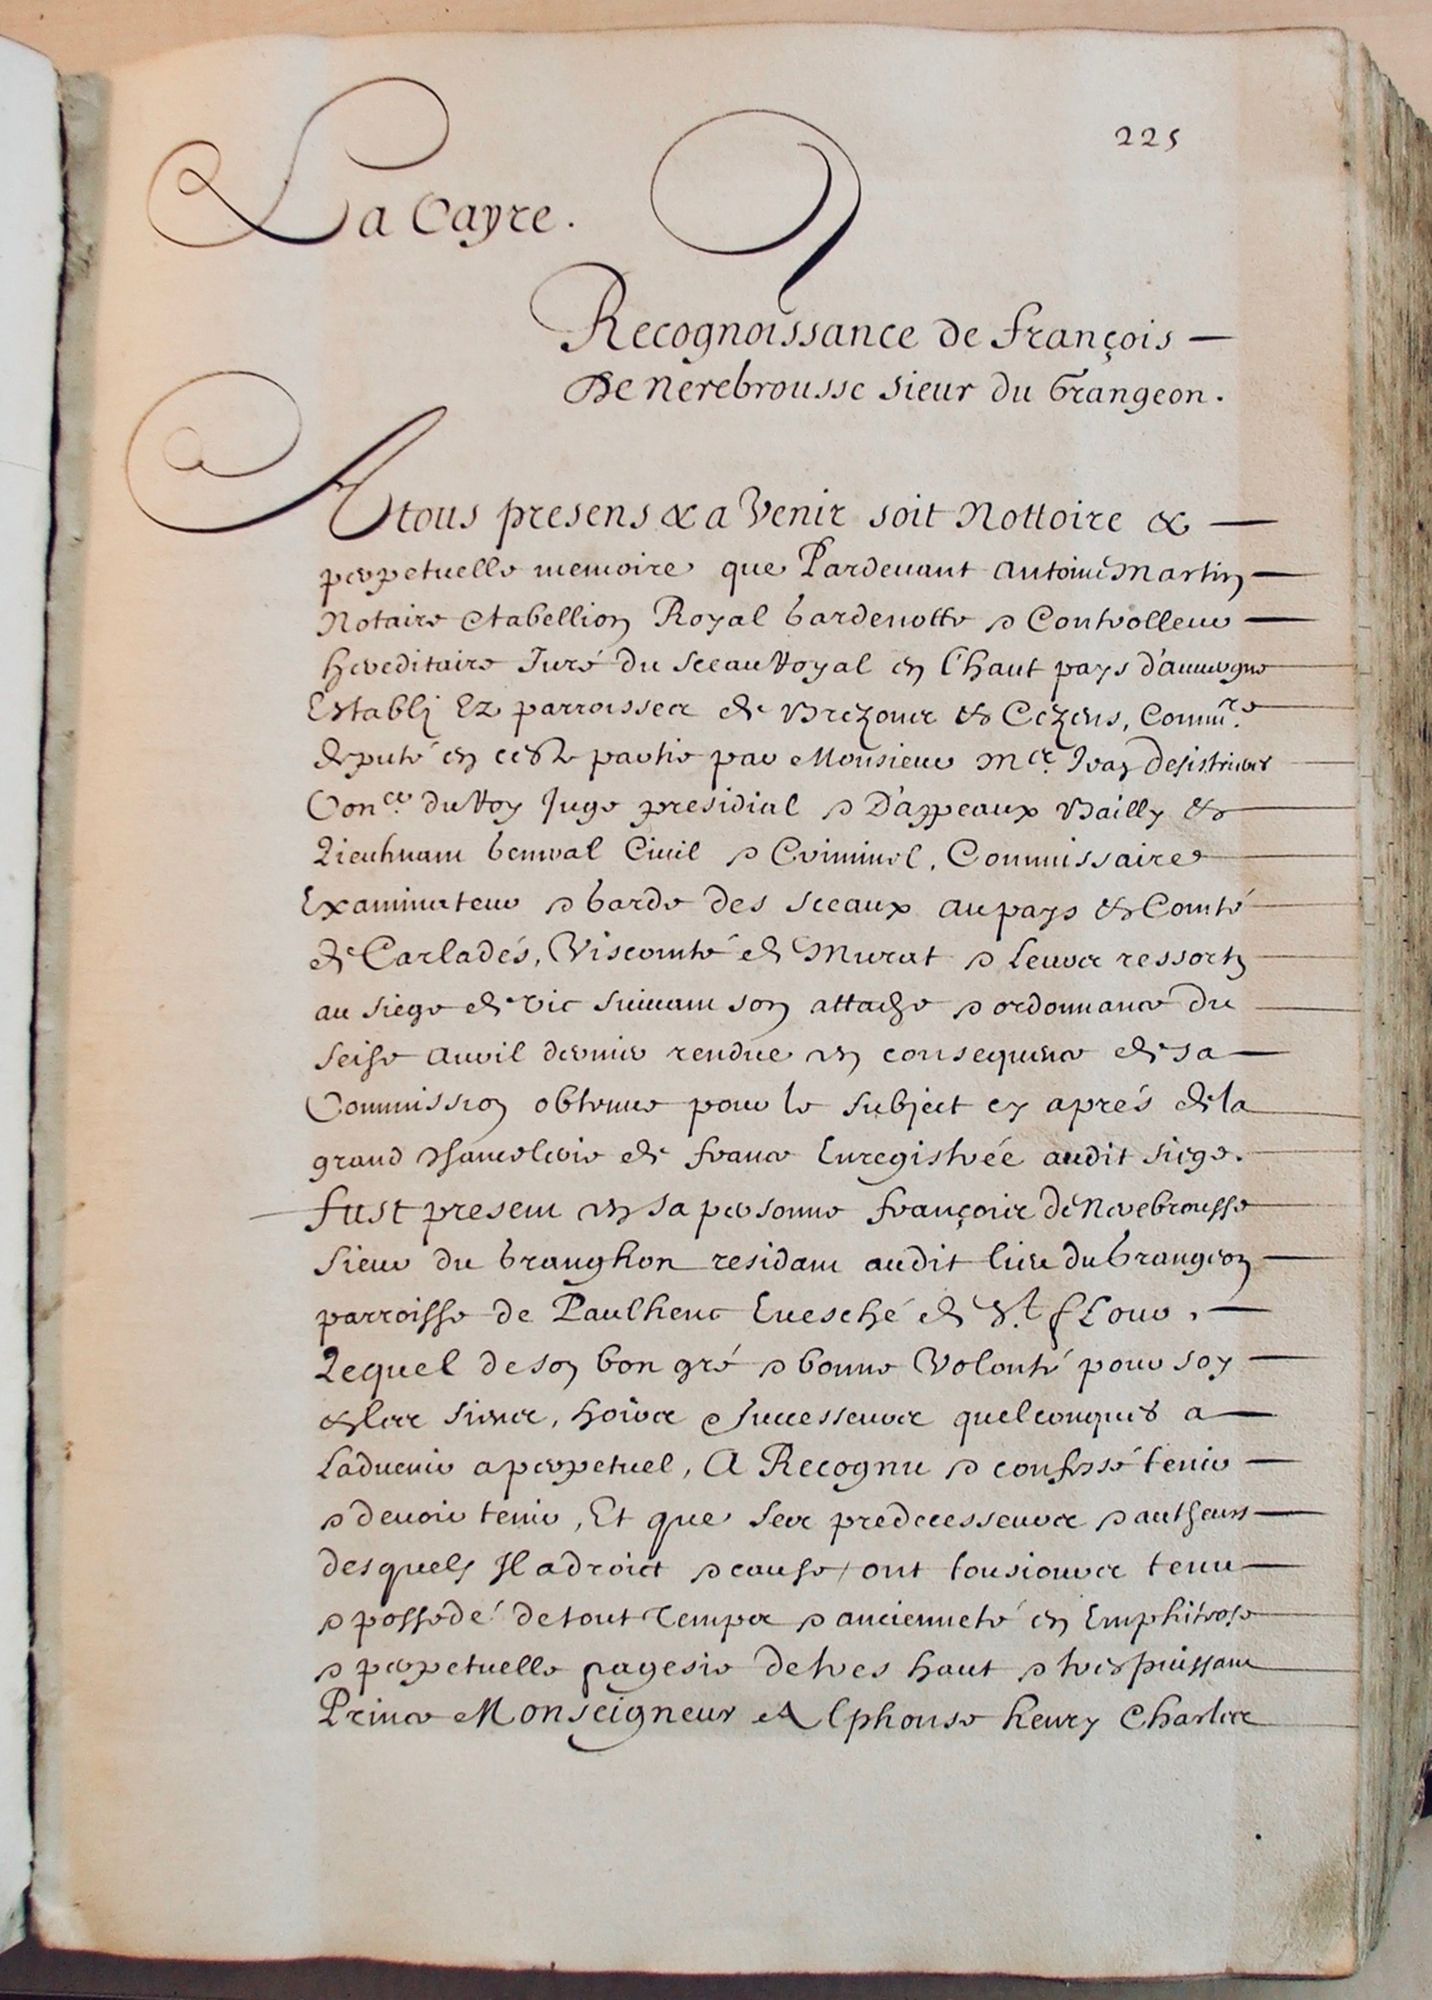 225
La Cayre.
Recognoissance de françois
De Nerebrousse sieur du Grangeon.
A tous presens & a Venir soit Nottoire &
perpetuelle memoire que Pardevant Antoine Martin
Notaire & tabellion Royal Gardenotte & Controlleur
hereditaire Juré du sceau Royal en l'haut pays d'auuergne
Establj Ez parroisses de Brezons & Cezens, Commre.
deputé en ceste partie par Monsieur Mer. Jean Desistrieres
Coner. du Roy Juge presidial & D'appeaux Bailly &
Lieutenant General Ciuil & Criminel, Commissaire
Examinateur & Garde des sceaux au pays & Comté
de Carladés, Viscomté de Murat & leurs ressorts
au siege de Vic suiuant son attache & ordonnance du
seise Auril dernier rendue en consequence de sa
Commission obtenue pour le subject cy aprés de la
grand Chancelerie de france Enregistrée audit siege.
fust present en sa personne françois de Nerebrousse
sieur du Granghon residant audit lieu du Grangeon
parroisse de Paulhenc Euesché de St. fLour,
Lequel de son bon gré & bonne Volonté pour soy
& les siens, hoirs & successeurs quelconques a
laduenir a perpetuel, A Recognu & confessé tenir
& deuoir tenir, Et que ses predecesseurs & autheurs
desquels Il a droict & cause, ont tousiours tenu
& possedé de tout temps & ancienneté en Emphiteose
& perpetuelle pagesie de tres haut & tres puissant
Prince Monseigneur Alphonse henry Charles